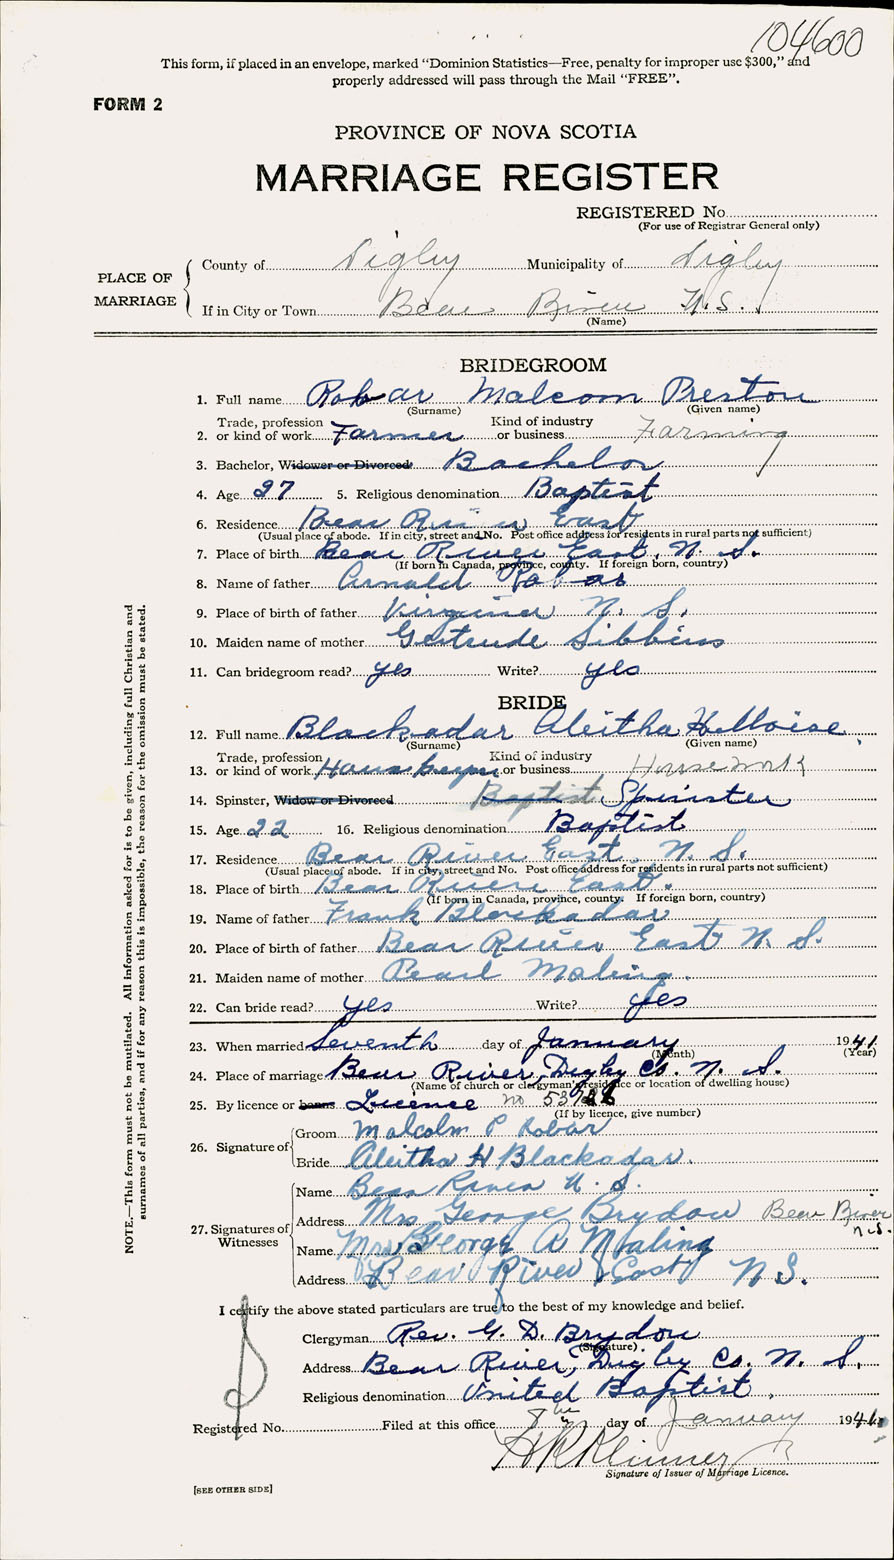 104600
This form, if placed in an envelope, marked "Dominion Statistics—Free, penalty for improper use $300," and
properly addressed will pass through the Mail "FREE".
FORM 2
PROVINCE OF NOVA SCOTIA
MARRIAGE REGISTER
REGISTERED No.
(For use of Registrar General only)
PLACE OF MARRIAGE
County of Digby Municipality of Digby
If in City or Town Bear River N.S.
(Name)
BRIDEGROOM
1. Full name Robar Malcom Preston
(Surname) (Given name)
2. Trade, profession or kind of work Farmer Kind of industry or business Farming
3. Bachelor, Widower or Divorced Bachelor
4. Age 27 5. Religious denomination Baptist
6. Residence Bear River East
(Usual place of abode. If in city, street and No. Post office address for residents in rural parts not sufficient)
7. Place of birth Bear River East, N. S.
(If born in Canada, province, county. If foreign born, country)
8. Name of father Arnold Robar
9. Place of birth of father Virginia N. S.
10. Maiden name of mother Gertrude Sibbins
11. Can bridegroom read? yes Write? yes
BRIDE
12. Full name Blackadar Aleitha Helloise
(Surname) (Given name)
13. Trade, profession or kind of work Kind of industry or business Housework
14. Spinster, Widow or Divorced Baptist Spinster
15. Age 22 16. Religious denomination Baptist
17. Residence Bear River East, N. S.
(Usual place of abode. If in city, street and No. Post office address for residents in rural parts not sufficient)
18. Place of birth Bear River East.
(If born in Canada, province, county. If foreign born, country)
19. Name of father Frank Blackadar
20. Place of birth of father Bear River East N. S.
21. Maiden name of mother Pearl Maling.
22. Can bride read? yes Write? yes
23. When married Seventh day of January 1941
(Month) (Year)
24. Place of marriage Bear River, Digby Co. N. S.
(Name of church or clergyman's residence or location of dwelling house)
25. By licence or banns Licence no
(If by licence, give number)
26. Signature of
Groom Malcolm P Robar
Bride Aleitha H Blackadar.
27. Signatures of Witnesses
Name Bear River N. S.
Address Mrs George Brydon Bear River N.S.
Name Mrs George A Maling
Address Bear River East N S.
I certify the above stated particulars are true to the best of my knowledge and belief.
Clergyman Rev. G. D. Brydon
(Signature)
Address Bear River, Digby Co. N. S.
Religious denomination United Baptist.
Registered No. Filed at this office 7th day of January 1941
Signature of Issuer of Marriage Licence.
[SEE OTHER SIDE]
NOTE.—This form must not be mutilated. All information asked for is to be given, including full Christian and
surnames of all parties, and if for any reason this is impossible, the reason for the omission must be stated.